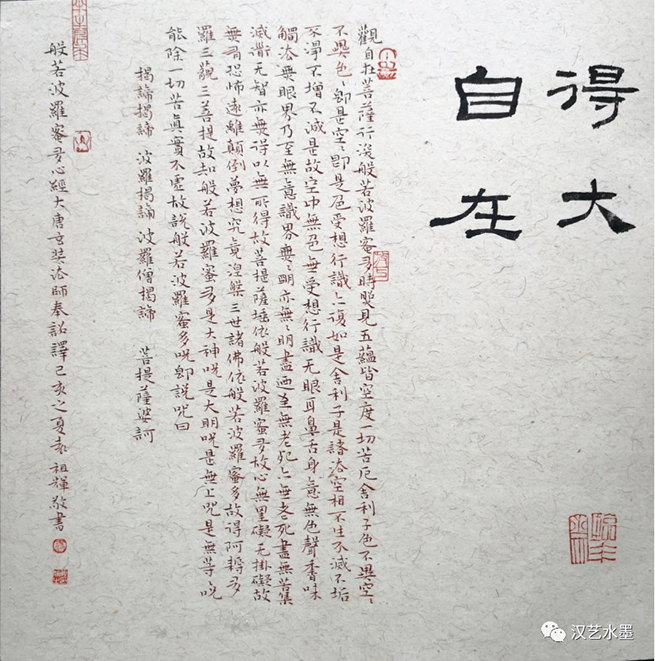 得大
自在
觀自在菩薩行深般若波羅蜜多時照見五蘊皆空度一切苦厄舍利子色不異空〻
不異色〻卽是空〻卽是色受想行識亦復如是舍利子是諸法空相不生不滅不垢
不淨不增不減是故空中無色無受想行識无眼耳鼻舌身意無色聲香味
觸法無眼界乃至無意識界無〻明亦無〻明盡迺至無老死亦無老死盡無苦集
滅道无智亦無得以無所得故菩提薩埵依般若波羅蜜多故心無罣礙无掛礙故
無有恐怖遠離顛倒夢想究竟涅槃三世諸佛依般若波羅蜜多故得阿耨多
羅三藐三菩提故知般若波羅蜜多是大神咒是大明咒是無上咒是無等〻咒
能除一切苦眞實不虛故說般若波羅蜜多咒卽說咒曰
揭諦揭諦 波羅揭諦 波羅僧揭諦 菩提薩婆訶
般若波羅蜜多心經大唐玄奘法師奉詔譯己亥之夏袁祖輝敬書
汉艺水墨